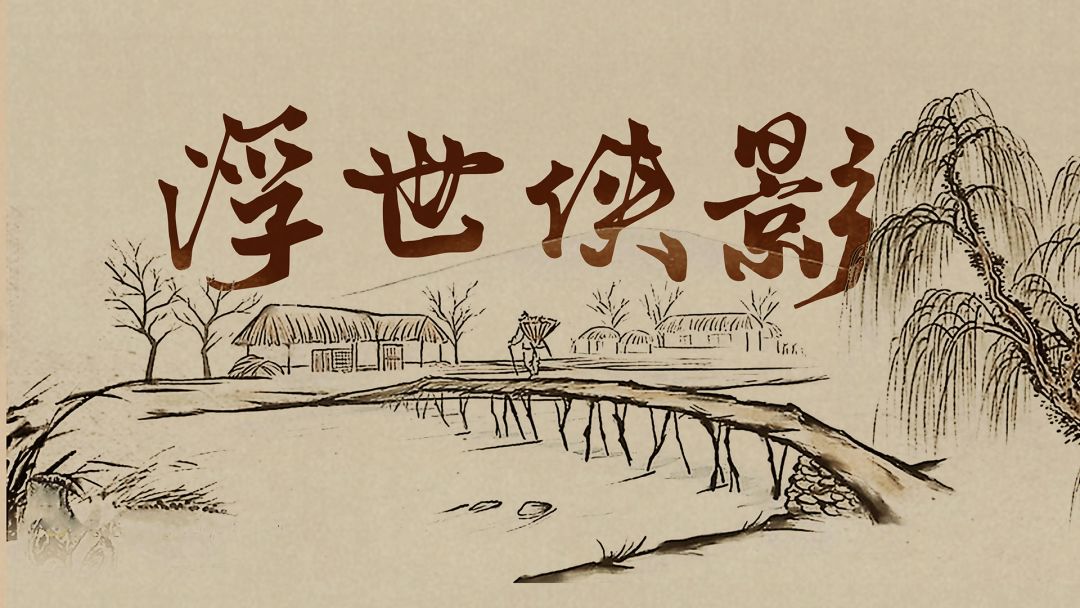 浮世侠影